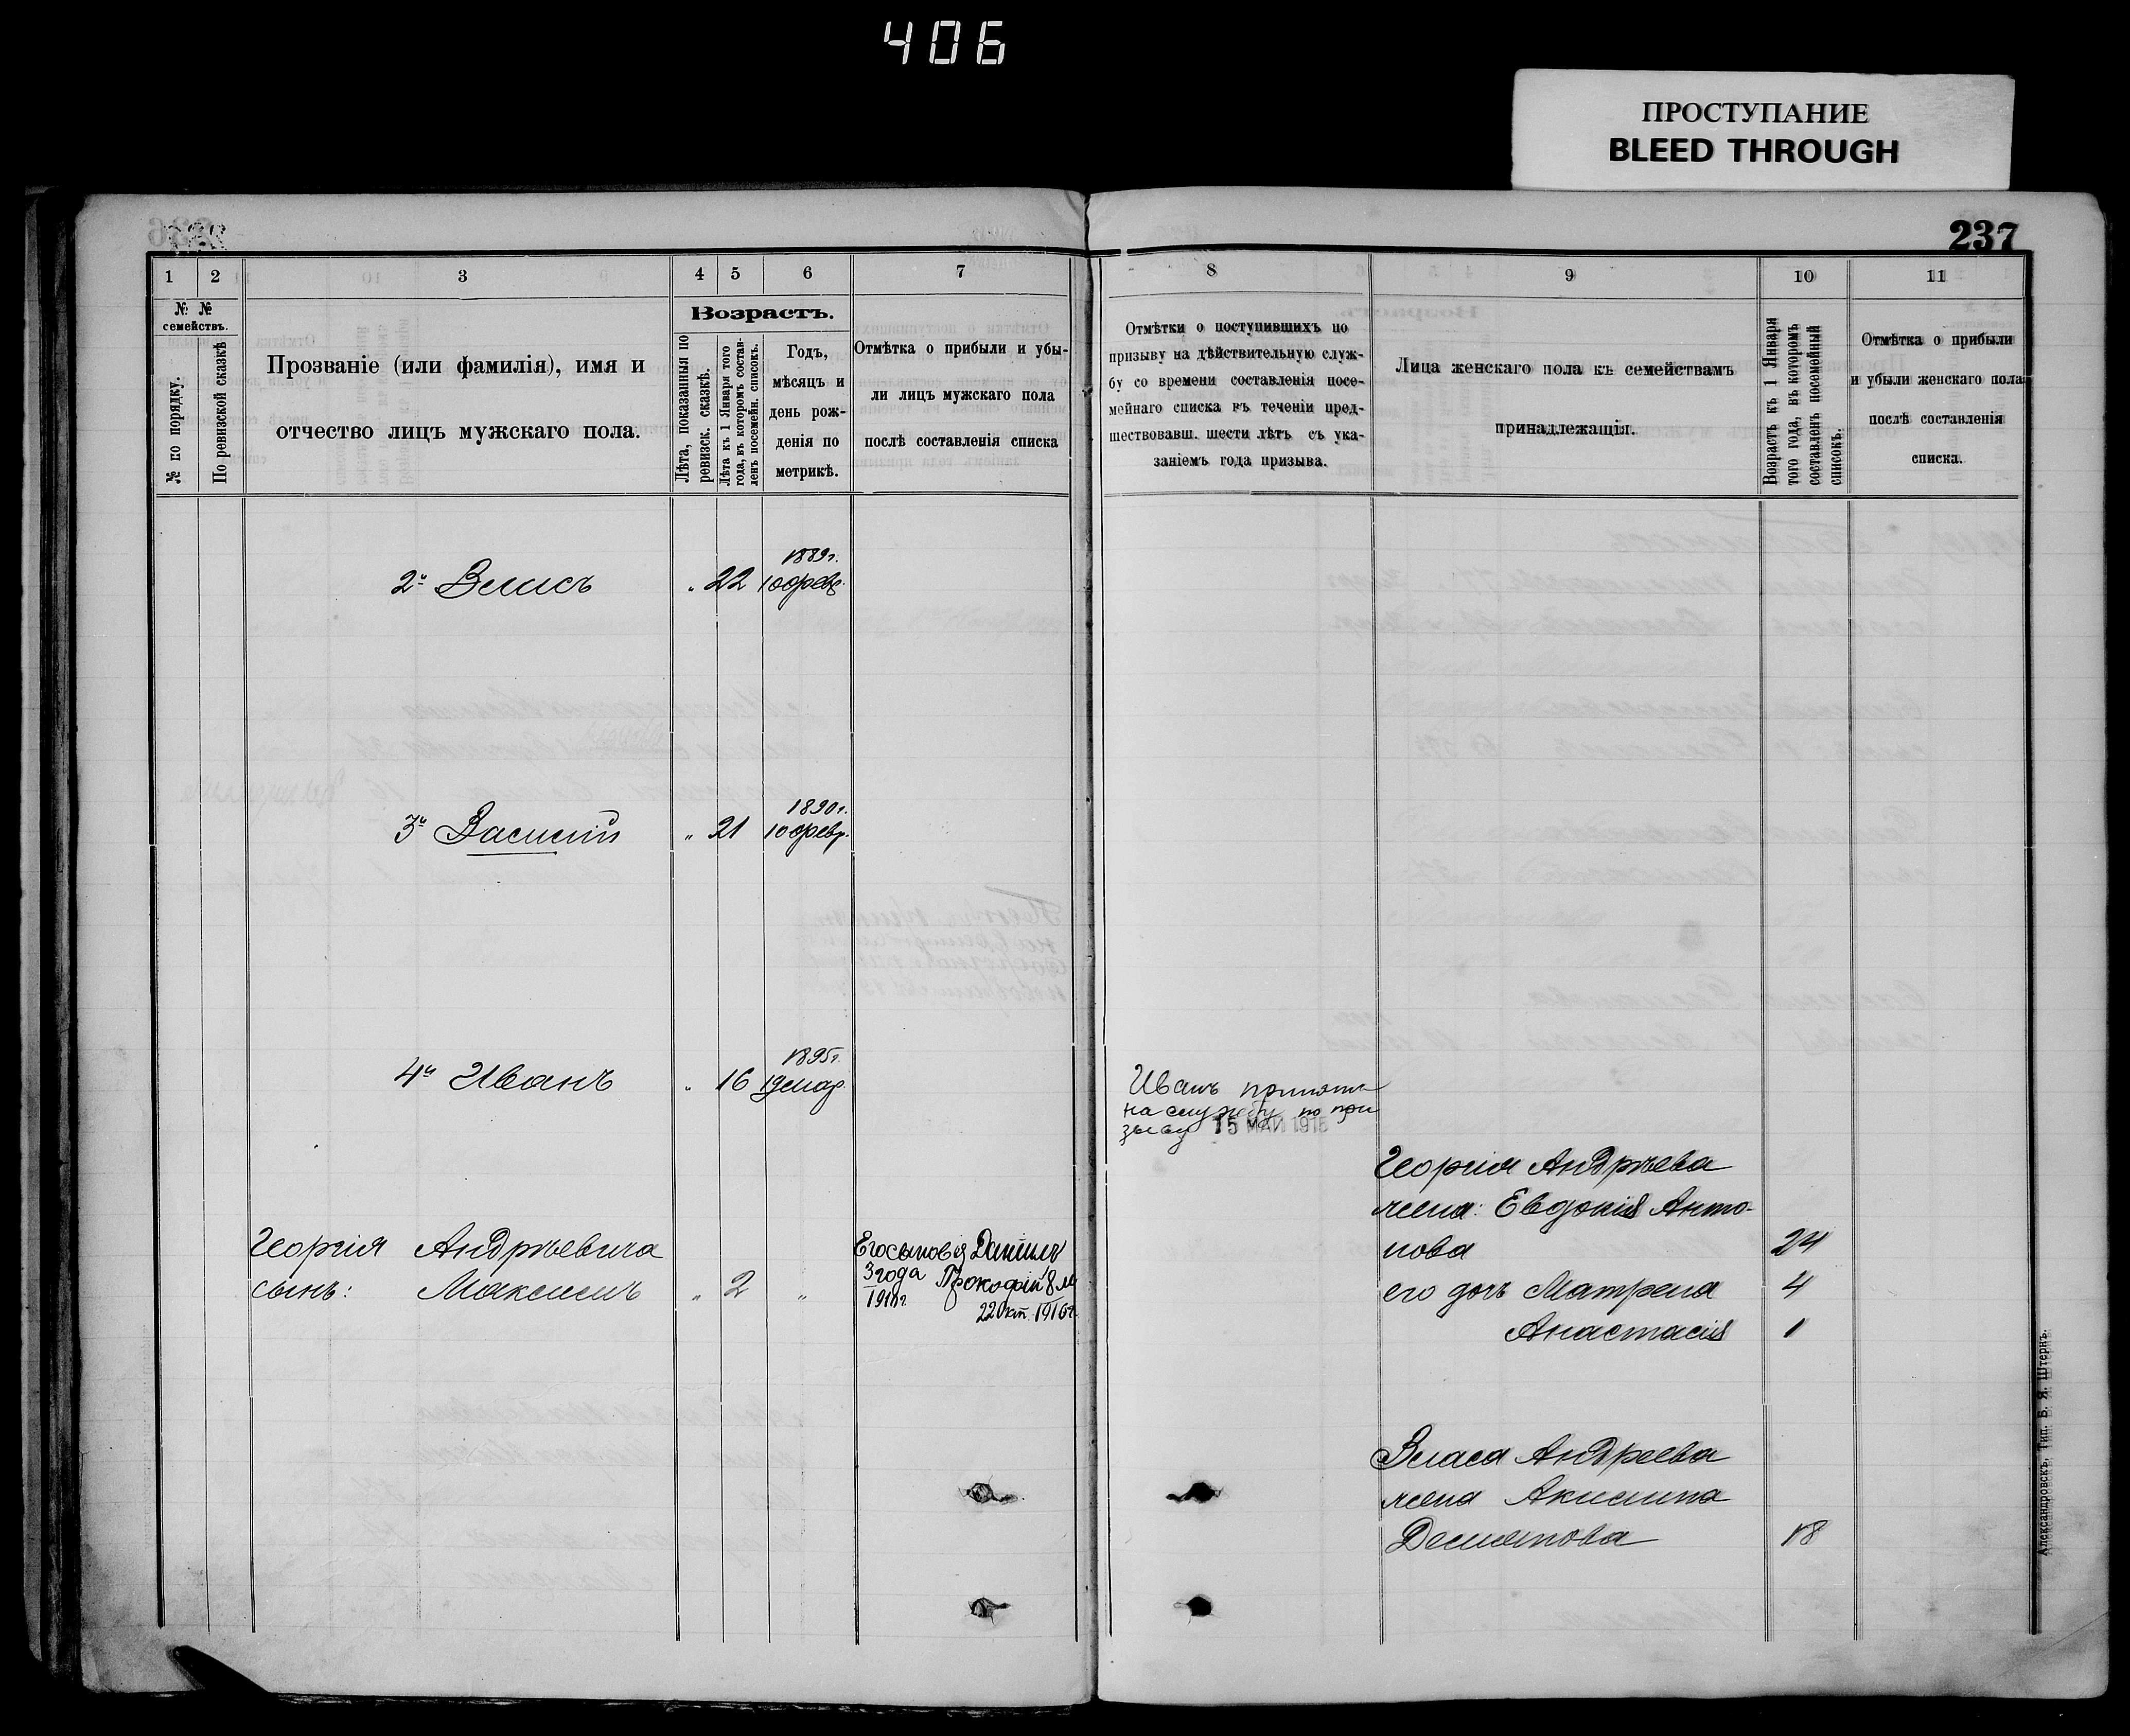 406
ПРОСТУПАНИЕ
BLEED THROUGH
237
1 2 3 4 5 6 7
№ № семействъ.
№ по порядку.
По ревизской сказкѣ
Прозваніе (или фамилія), имя и
отчество лицъ мужскаго пола.
Возрастъ.
Лѣта, показанныя по
ревизск. сказкѣ.
Лѣта къ 1 Января того
года, въ которомъ состав-
ленъ посемейн. списокъ.
Годъ,
мѣсяцъ и
день рож-
денія по
метрикѣ.
Отмѣтка о прибыли и убы-
ли лицъ мужскаго пола
послѣ составленія списка
2й Власъ " 22 1889г. 10 февр.
3й Василій " 21 1890г. 10 февр.
4й Иванъ " 16 1895г. 19 мар.
Георгія Андрѣевича
сынъ: Максимъ " 2 "
Его сыновья Даніилъ
3 года Прокофій 8 м
1911г.
22 окт. 1916г.
8 9 10 11
Отмѣтки о поступившихъ по
призыву на дѣйствительную служ-
бу со времени составленія посе-
мейнаго списка въ теченіи пред-
шествовавш. шести лѣтъ съ ука-
заніемъ года призыва.
Лица женскаго пола къ семействамъ
принадлежащія.
Возрастъ къ 1 Января
того года, въ которомъ
составленъ посемейный
списокъ.
Отмѣтка о прибыли
и убыли женскаго пола
послѣ составленія
списка.
Иванъ принятъ
на службу по при
зыву 15 МАЙ 1915
Георгія Андрѣева
жена: Евдокія Анто-
нова 24
его дочь Матрена 4
Анастасія 1
Власа Андреева
жена Акилина
18
Александровскъ, Тип. Б. Я. Штернъ.